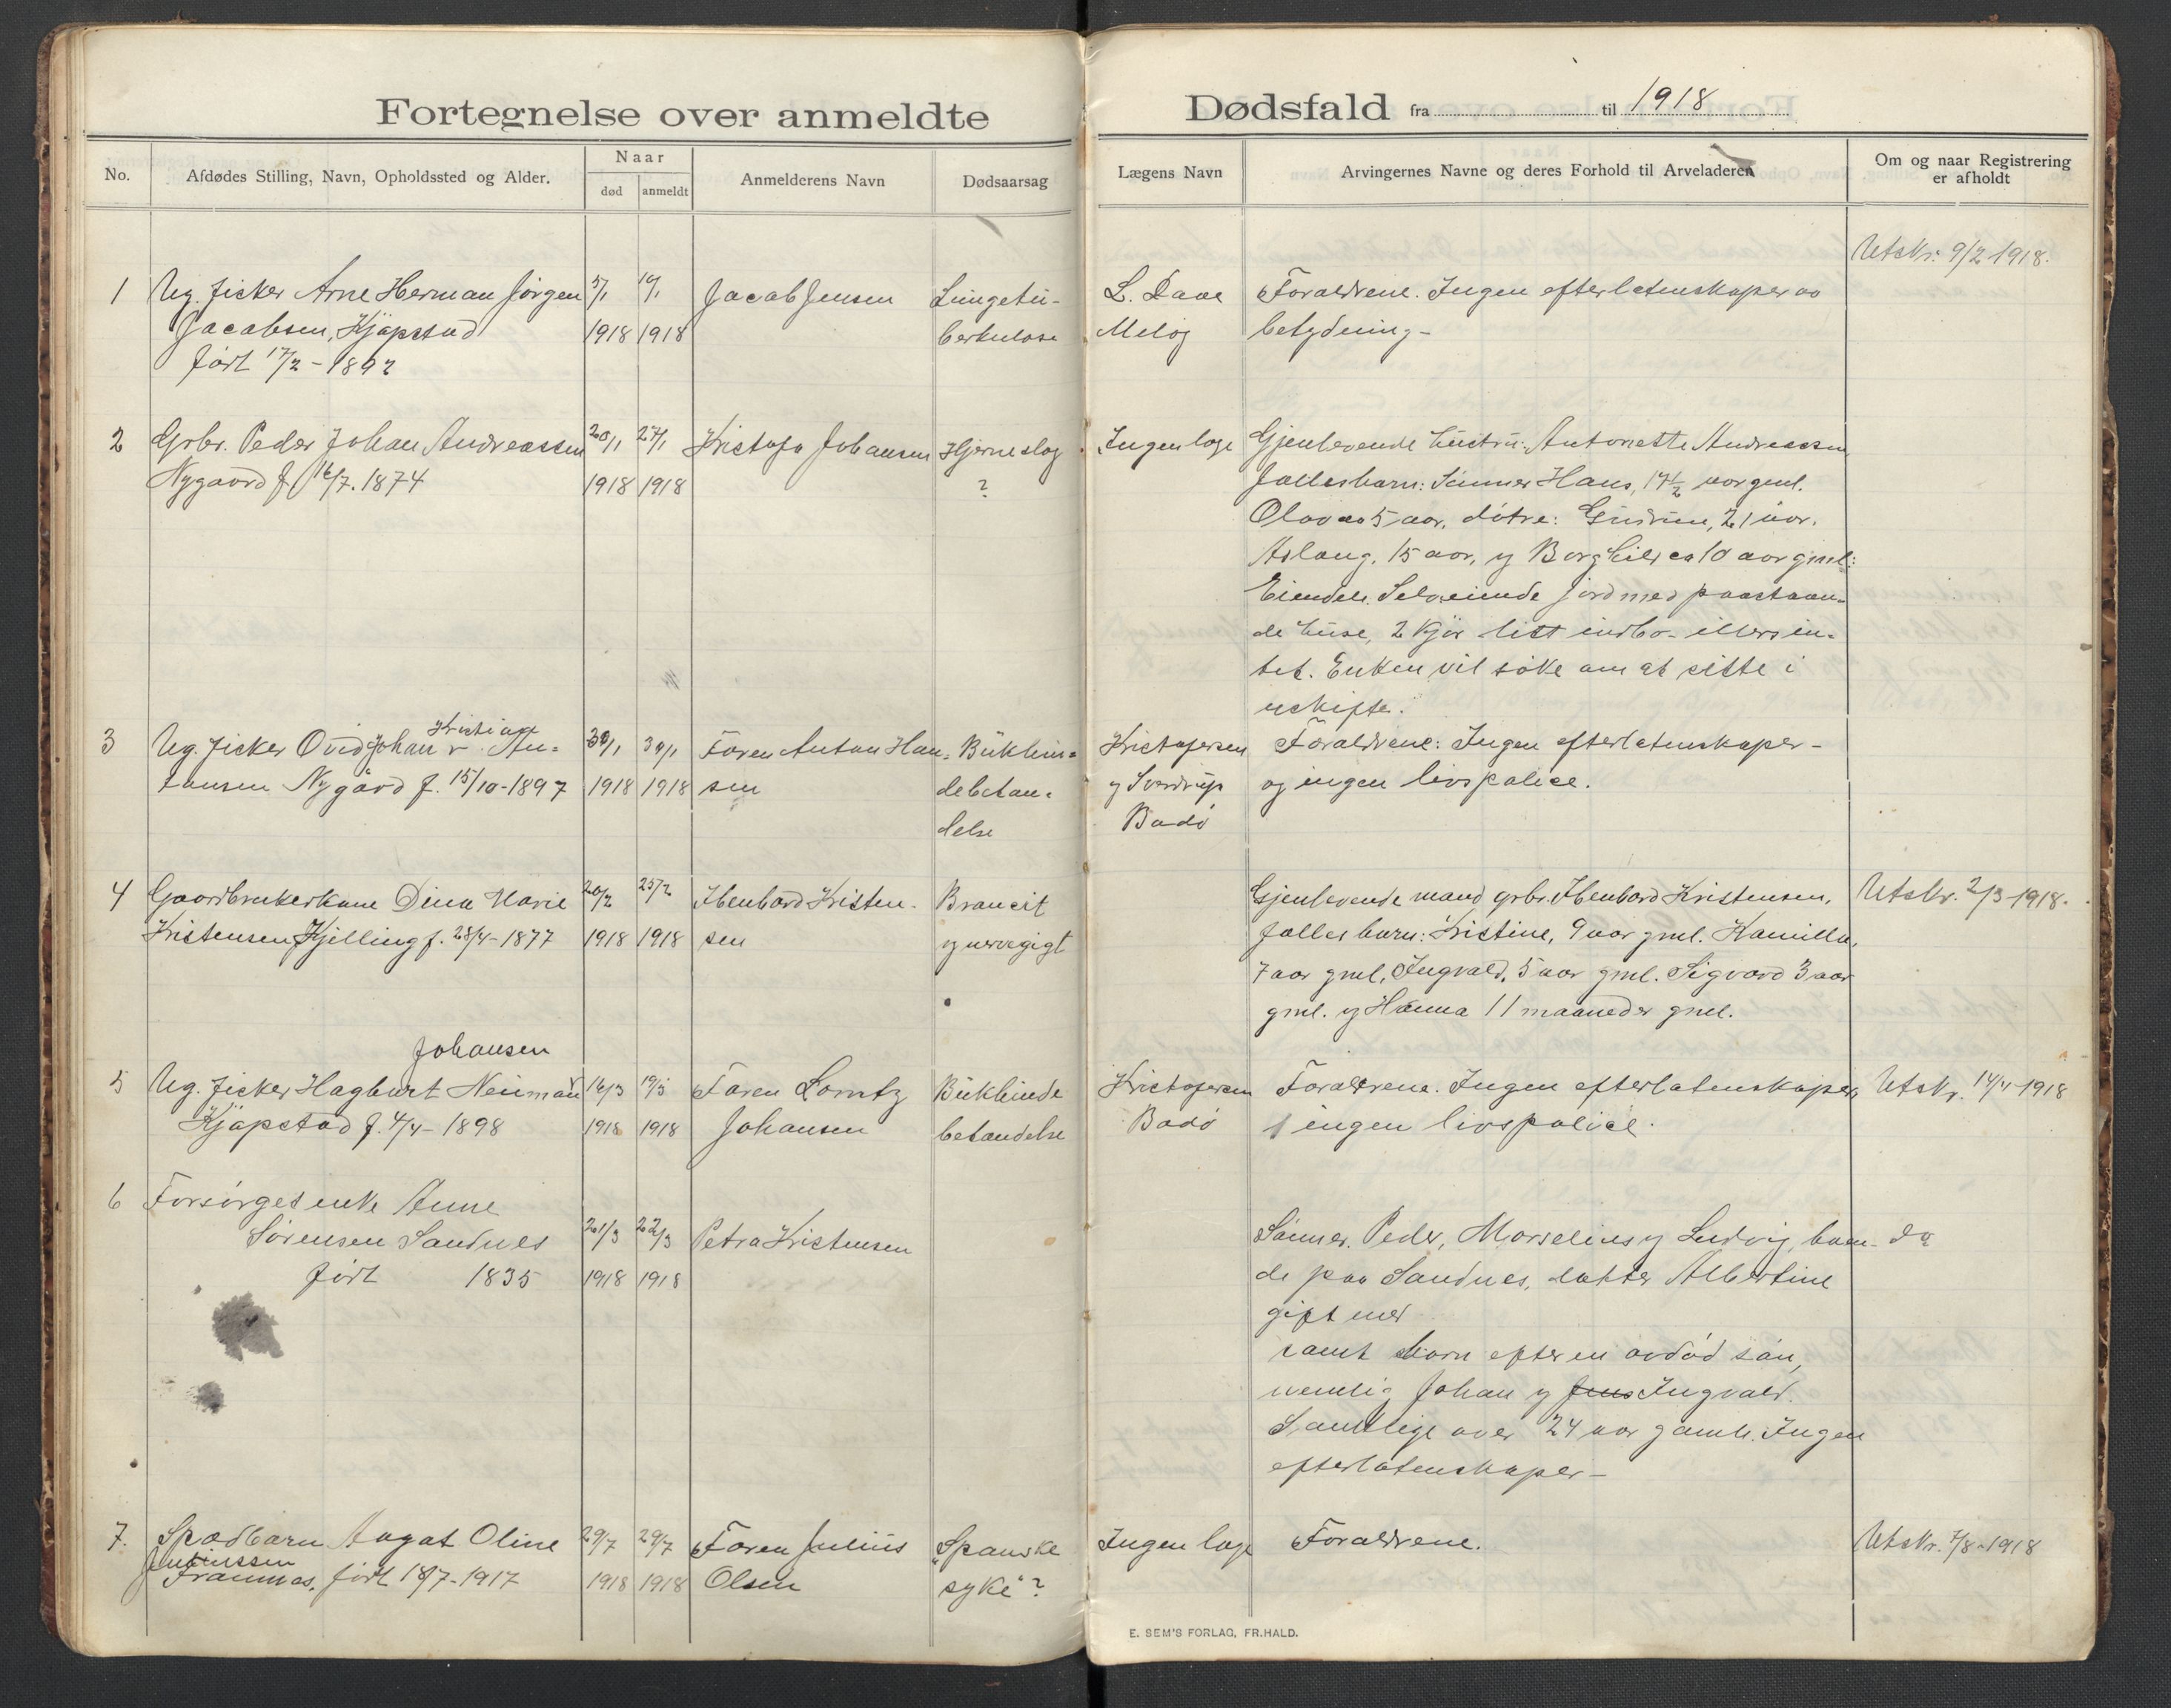 Fortegnelse over anmeldte Dødsfald fra til 1918
No.
Afdødes Stilling, Navn, Opholdssted og Alder.
Naar
død
anmeldt
Anmelderens Navn
Dødsaarsag
Lægens Navn
Arvingernes Navne og deres Forhold til Arveladeren
Om og naar Registrering
er afholdt
1
Ug. fisker Arne Herman Jørgen
Jacobsen, Kjøpstad
født 17/2 - 1892
5/1
1918
14/1
1918
Jacob Jensen
Lungetu-
berkulose
L. Daae
Meløy
Forældrene. Ingen efterlatenskaper av
betydning -
Utskr. 9/2 1918.
2
Grbr. Peder Johan Andreassen
Nygaard f. 16/7. 1874
20/1
1918
27/1
1918
Kristofa Johansen
Hjerneslag
?
Ingen læge
Gjenlevende hustru: Antonette Andreassen
fællesbarn: Sønner Hans, 17½ aar gml.
Olav ca 5 aar, døtre: Gudrun, 21 aar.
Aslaug, 15 aar, og Borghild ca 10 aar gml:
Eiendele. Selveiende jord med paastaaen-
de huse, 2 kjør litt indbo - ellers in-
tet. Enken vil søke om at sitte i
uskifte.
3
Kristian
Ug. fisker Ovid Johan v. An-
tonsen Nygård f. 15/10-1897
30/1
1918
30/1
1918
Faren Anton Han-
sen
Bukhin-
debetæn-
delse
Kristofersen
og Sverdrup
Bodø
Forældrene: Ingen efterlatenskaper -
og ingen livspolice.
4
Gaardbrukerkone Dina Marie
Kristensen Kjelling f. 28/4-1877
20/2
1918
25/2
1918
Ibenhard Kristen-
sen
Broncit
og nervegigt
Gjenlevende mand grbr. Ibenhard Kristensen,
fælles barn: Kristine, 9 aar gml. Kamilla,
7 aar gml, Ingvald, 5 aar gml. Sigvard 3 aar
gml. og Hanna 11 maaneder gml.
Utskr. 2/3-1918.
5
Johansen
Ug. fisker Hagbart Neuman
Kjøpstad f. 4/4 - 1898
16/3
1918
19/3
1918
Faren Lorntz
Johansen
Bukhinde
betændelse
Kristofersen
Bodø
Forældrene. Ingen efterlatenskaper,
ingen livspolice.
Utskr. 14/4-1918
6
Forsørget enke Anne
Sørensen Sandnes
født 1835
21/3
1918
22/3
1918
Petra Kristensen
Sønner. Peder, Marselius og Ludvig, boen-
de paa Sandnes, datter Albertine
gift med
samt barn efter en avdød søn,
nemlig Johan og Jens Ingvald.
Samtlige over 24 aar gamle. Ingen
efterlatenskaper -
do
7.
Spædbarn Aagot Oline
Juliussen
født 18/7-1917
29/7
1918
29/7
1918
Faren Julius
Olsen
"Spanske
syke"?
Ingen læge
Forældrene.
Utskr. 7/8-1918
E. SEM'S FORLAG, FR.HALD.